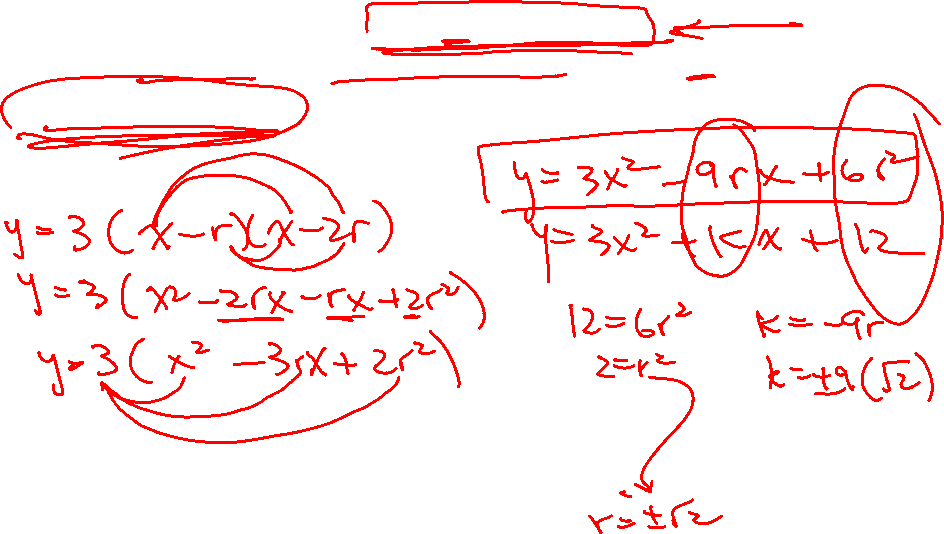 y = 3(x-r)(x-2r)
y = 3(x² - 2rx - rx + 2r²)
y = 3(x² - 3rx + 2r²)
y = 3x² - 9rx + 6r²
y = 3x² + kx + 12
12 = 6r²
2 = r²
r = ±√2
k = -9r
k = ±9(√2)